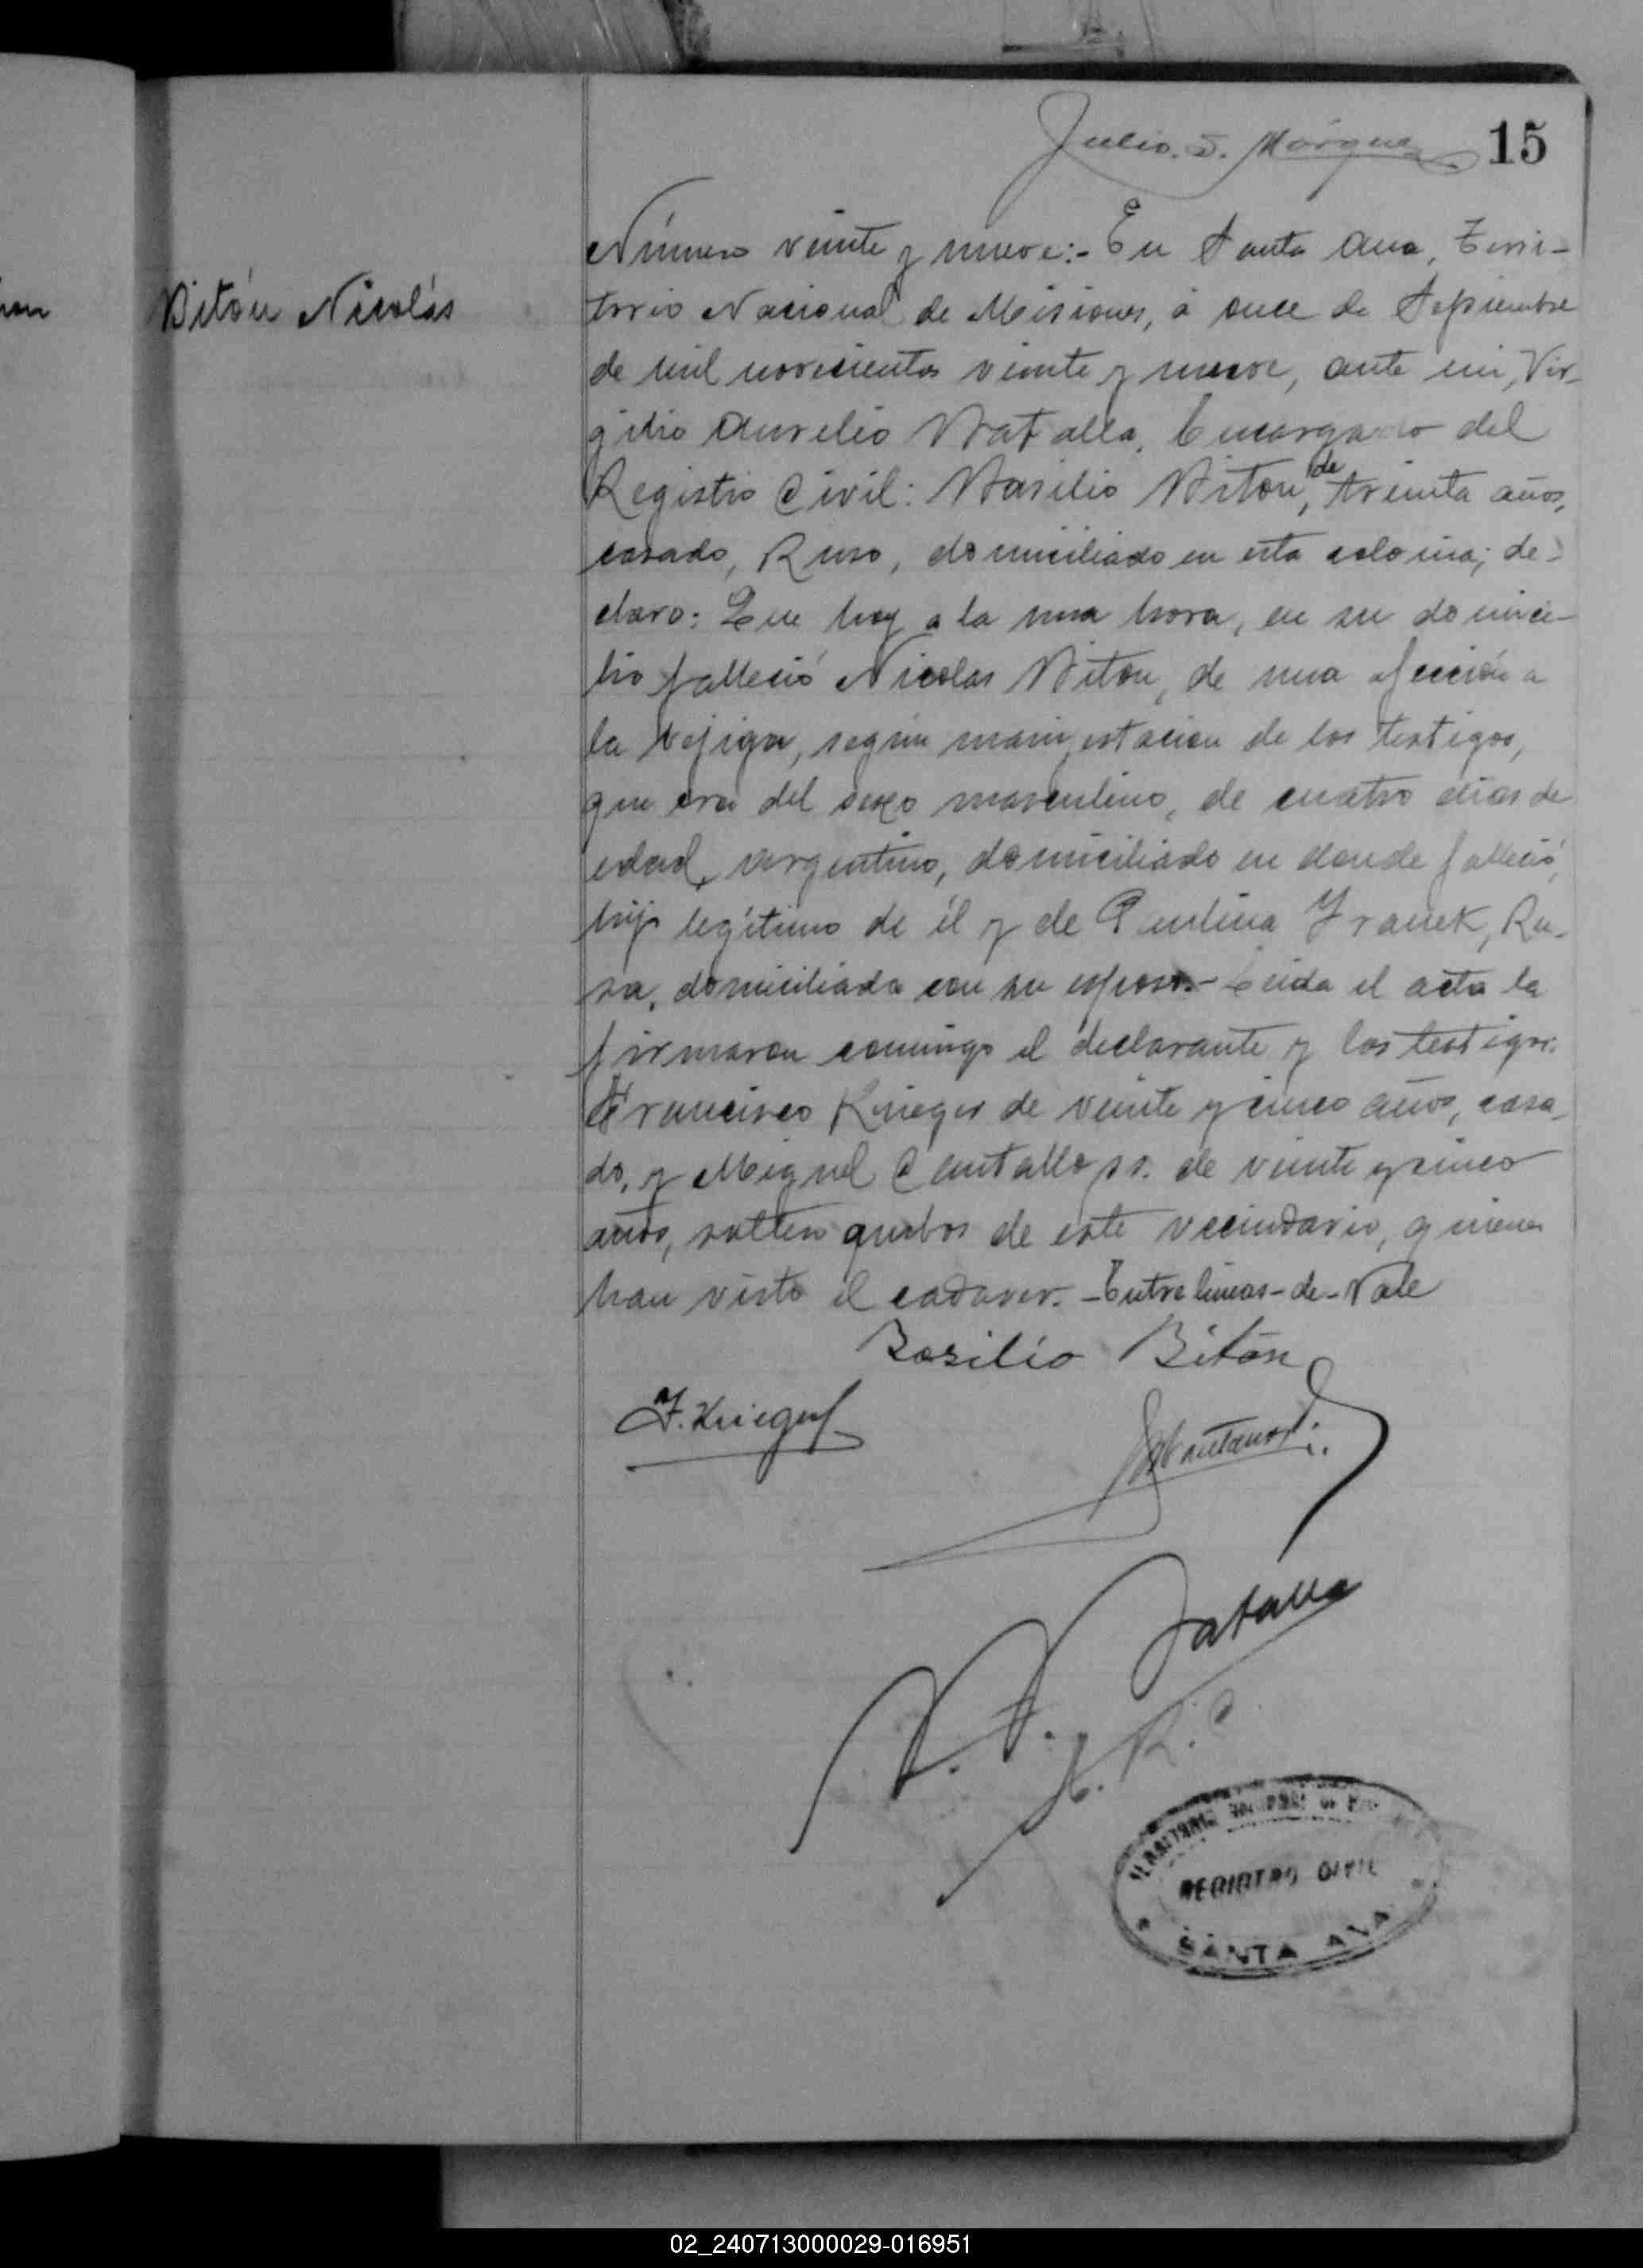 Julio. S. Márquez
15
Bitón Nicolás
Número veinte y nueve:- En Santa Ana, Terri-
torio Nacional de Misiones, á once de Sepsiembre
de mil novecientos veinte y nueve, ante mi, Vir-
gilio Aurelio Batalla, Encargado del
Registro Civil: Basilio Biton, de treinta años,
casado, Ruso, domiciliado en esta colonia; de-
claro: Que hoy a la una hora, en su domici-
lio falleció Nicolas Biton, de una afección a
la vejiga, según manifestacion de los testigos,
que era del sexo masculino, de cuatro días de
edad, argentino, domiciliado en donde falleció,
hijo legítimo de él y de Paulina Franek, Ru-
sa, domiciliada con su esposo.- Leida el acta la
firmaron comigo el declarante y los testigos:
Francisco Krieger de veinte y cinco años, casa-
do, y Miguel Cantallops. de veinte y cinco
años, soltero ambos de este vecindario, quienes
han visto el cadaver. - Entre lineas - de - Vale
Basilio Bitón
F. Krieger
V. A. Batalla
E. R. C
TERRITORIO NACIONAL DE MISIONES
REGISTRO CIVIL
SANTA ANA
02_240713000029-016951